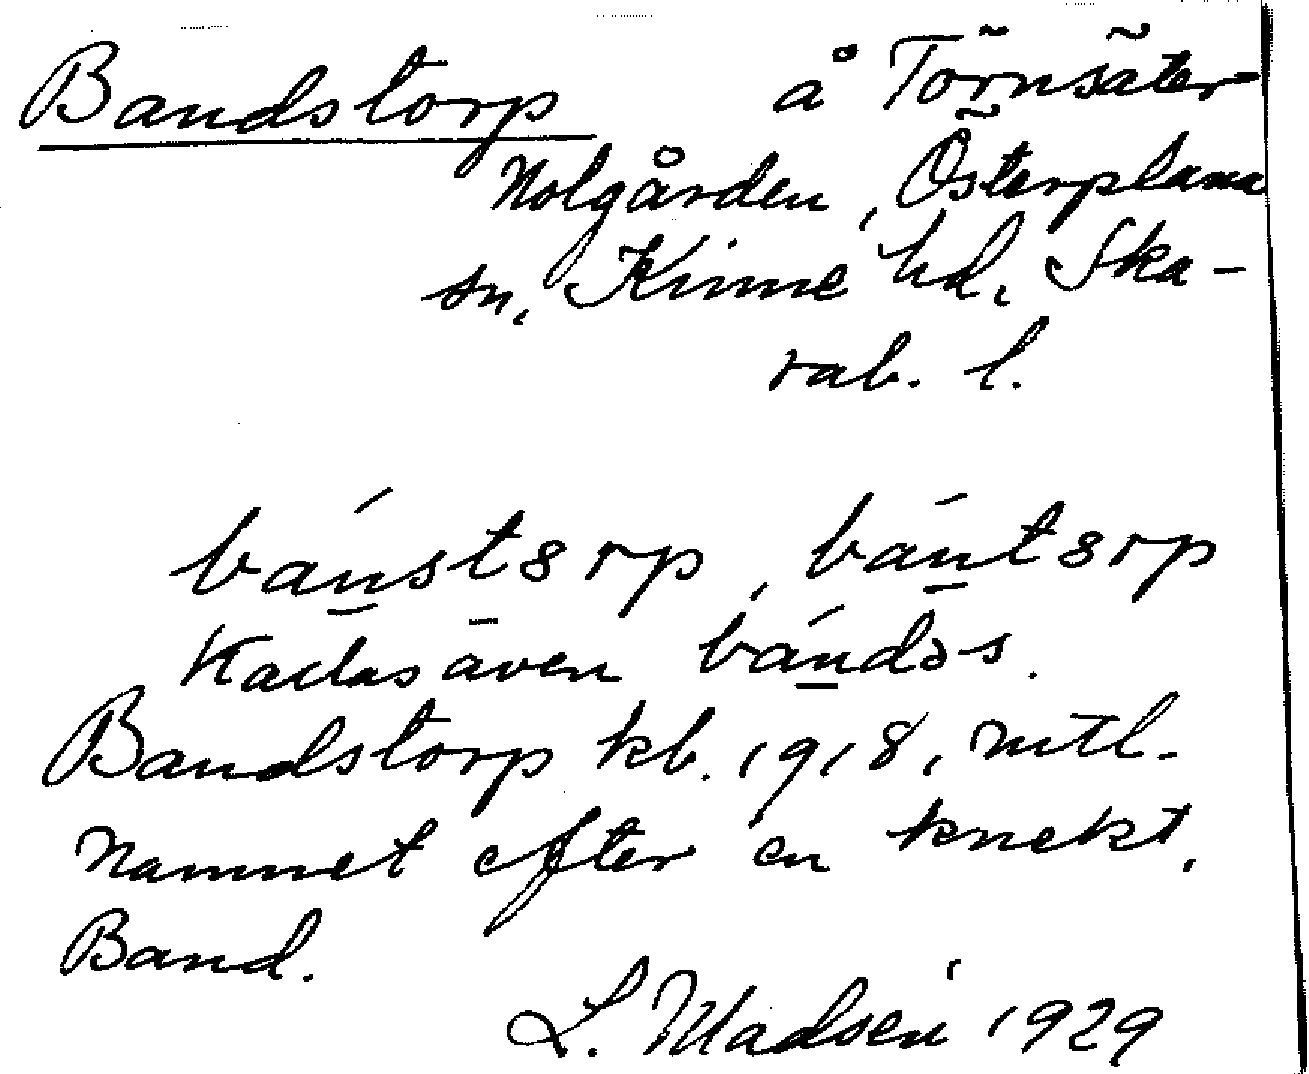 Bandstorp å Törnsäter-
Nolgården, Österplana
sn, Kinne hd, Ska-
rab. l.
bánstorp, bántorp
Kallas även bándəs.
Bandstorp kb. 1918, mtl.
Namnet efter en knekt,
Band.
L. Madsén 1929